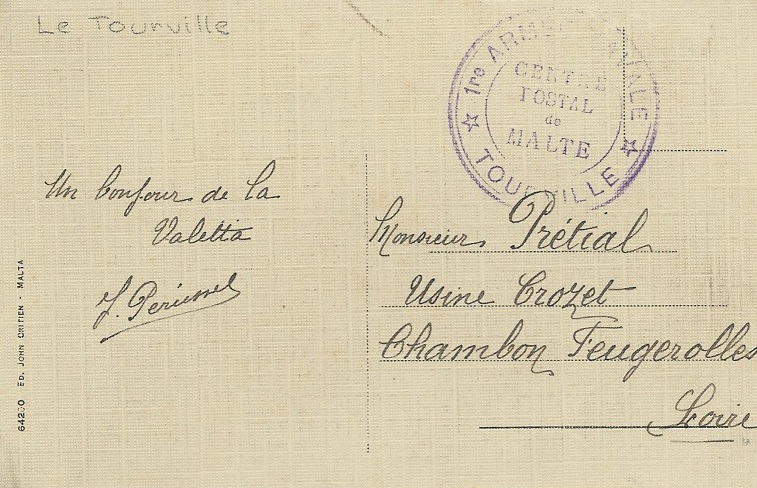 Le Tourville
1re ARMÉE NAVALE
CENTRE
POSTAL
de
MALTE
TOURVILLE
Un bonjour de La
Valetta
Monsieur Prétial
Usine Crozet
Chambon Feugerolles
Loire
ED. JOHN CRITIEN - MALTA